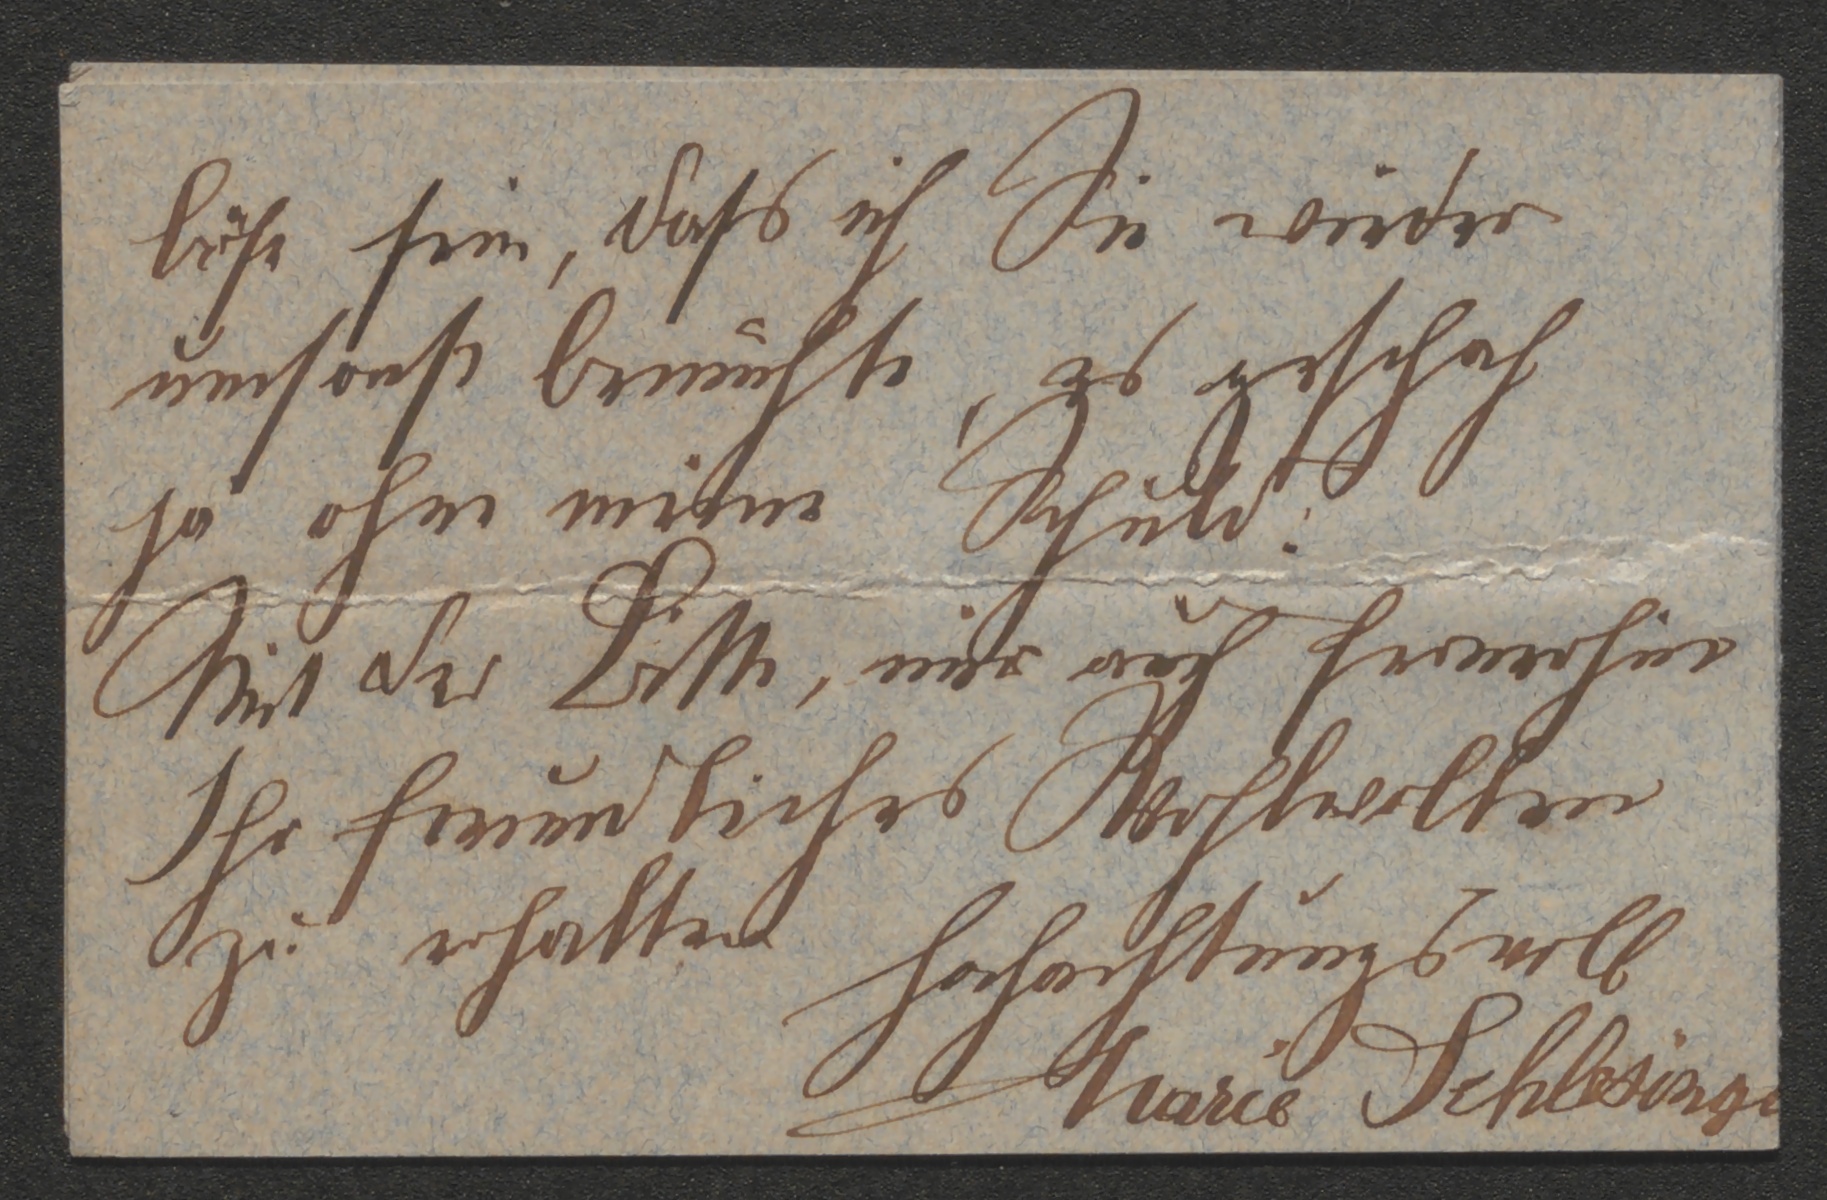 böse sein, dass ich Sie wieder
umsonst bemühte, es geschah
ja ohne meine Schuld!
Mit der Bitte, mir auch fernerhin
Ihr freundliches Wohlwollen
zu erhalten
hochachtungsvoll
Marie Schlesinge